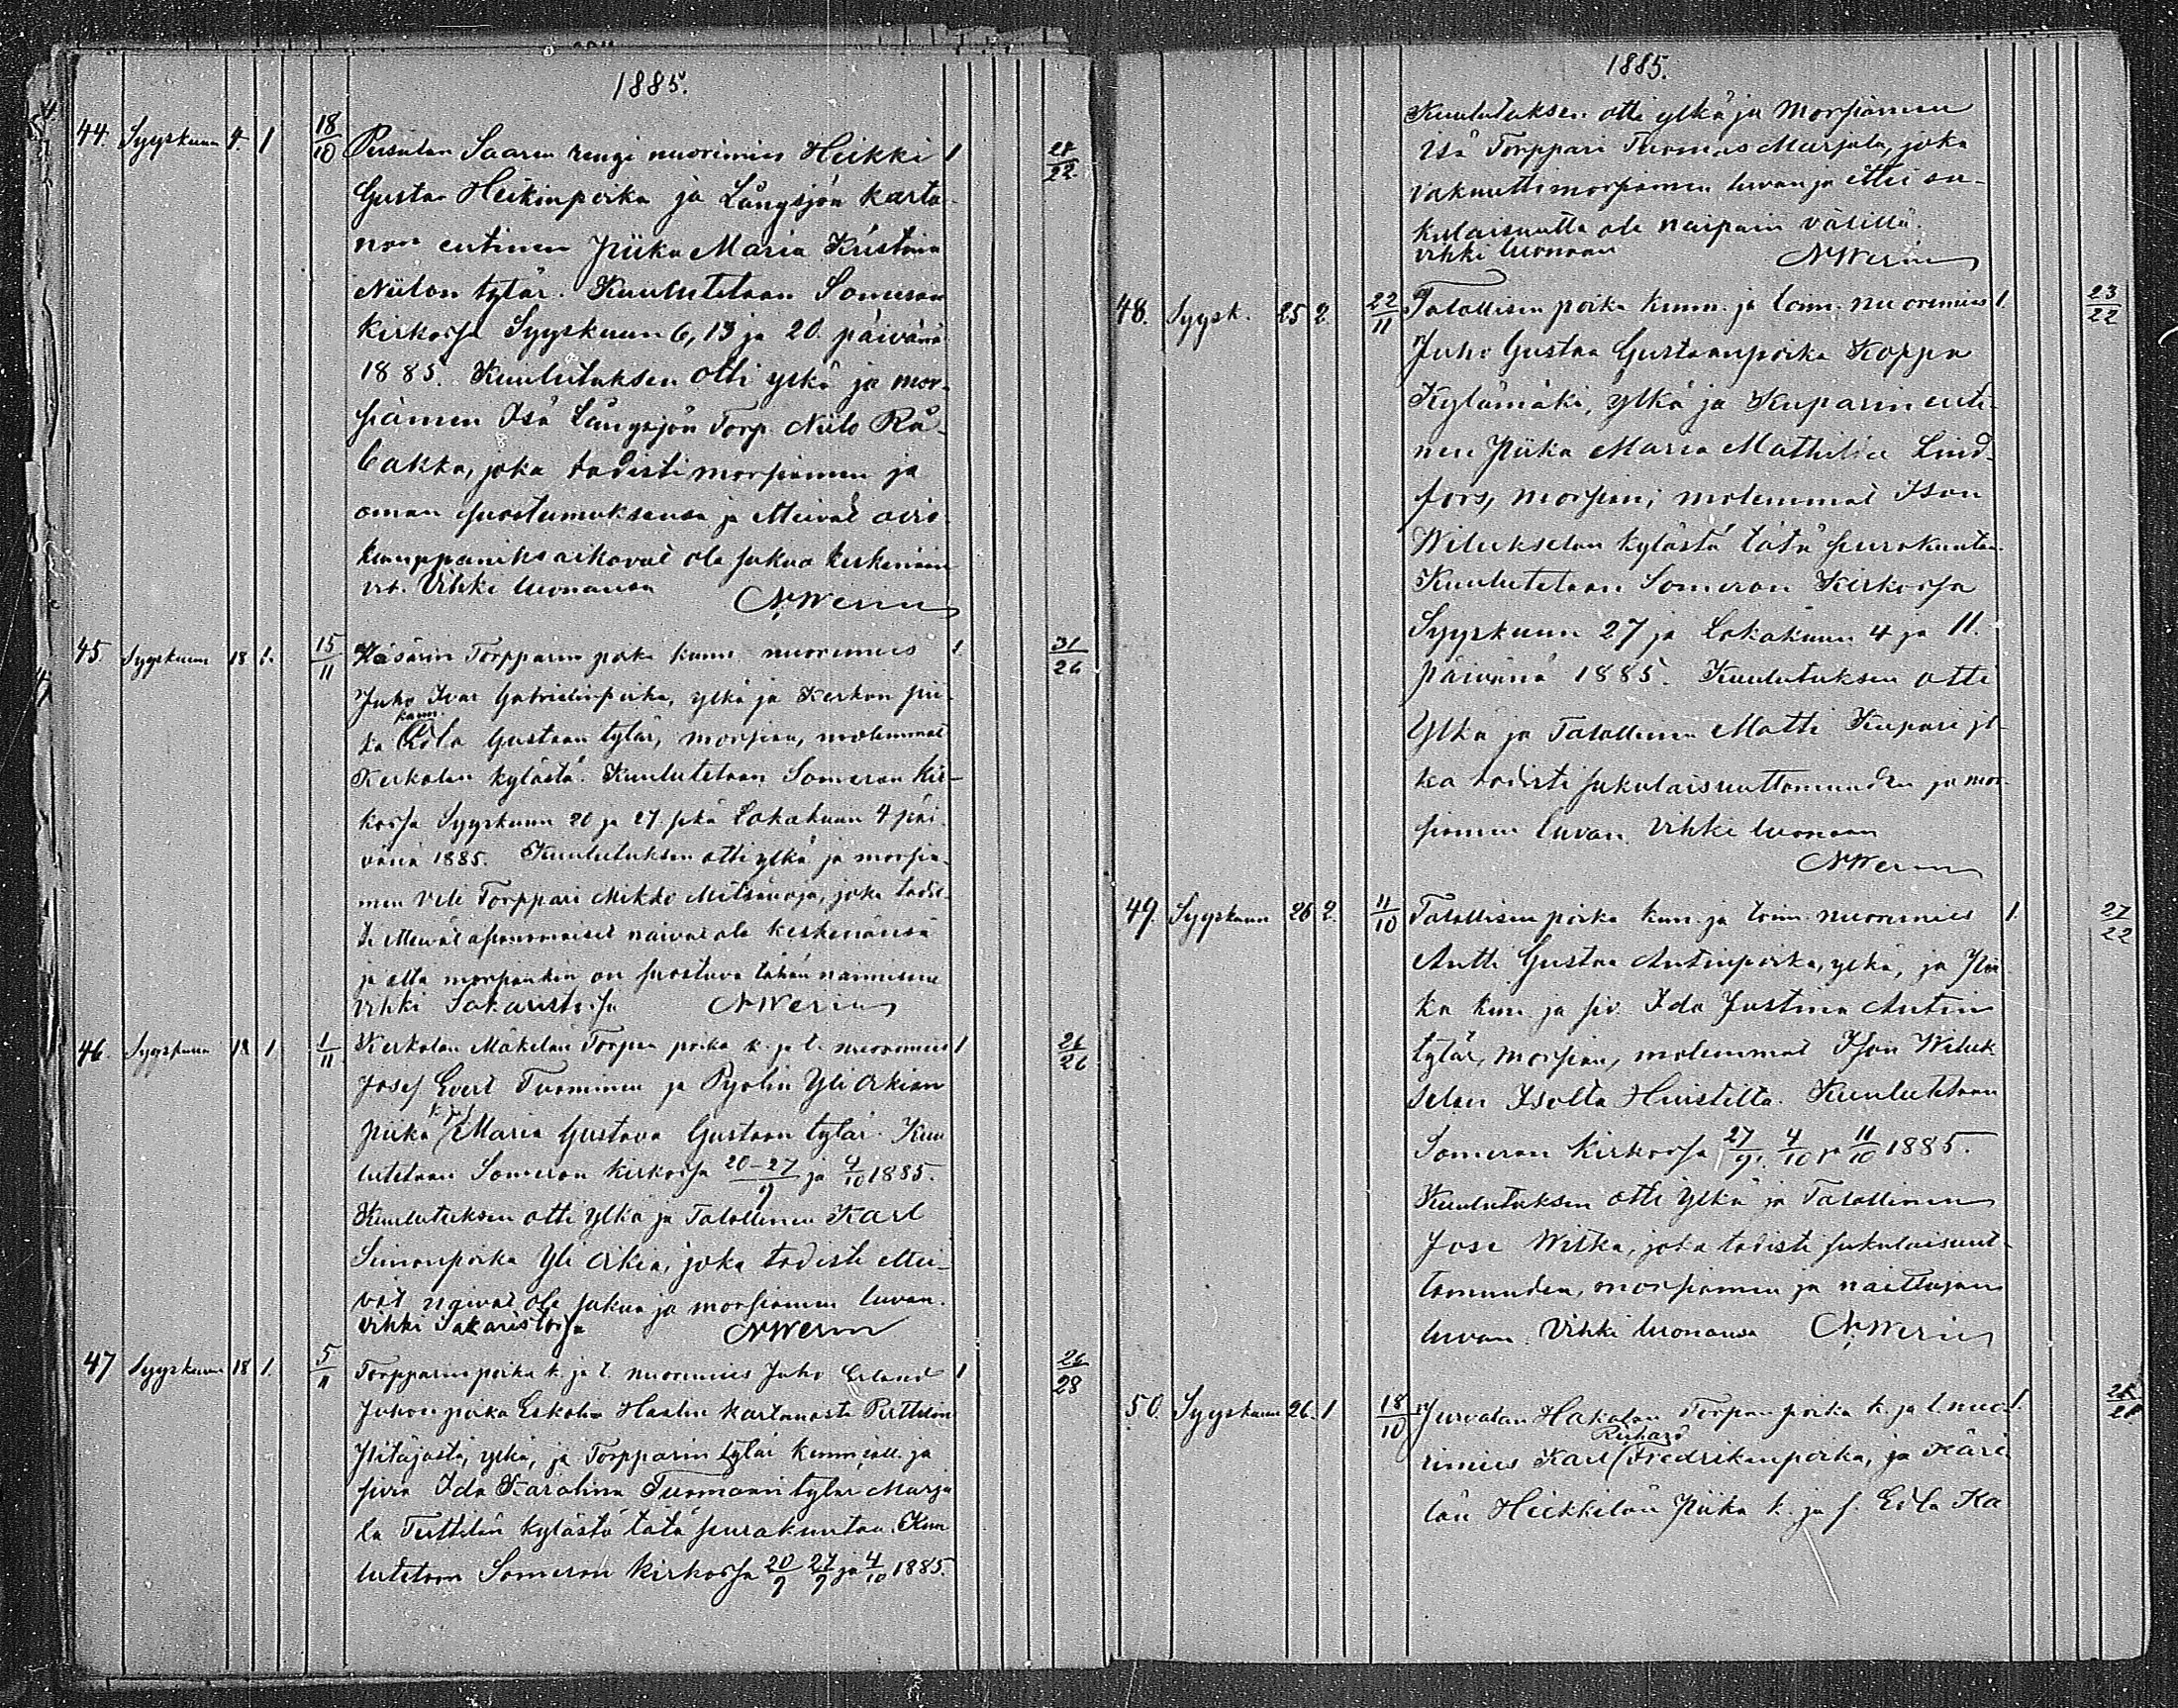 1885.
44. Syyskuun 4. 1 18/10 Pusulan Saaren rengi nuorimies Heikki 1 28/22
Gustaa Heikinpoika ja Långsjön karta-
non entinen Piika Maria Kristiina
Niilon tytär. Kuulutetaan Someron
kirkossa Syyskuun 6, 13 ja 20. päivänä
1885. Kuulutuksen otti ylkä ja mor-
siamen Isä Långsjön Torp. Niilo Rå-
backa, joka todisti morsiamen ja
oman suostumuksensa ja etteivät avio-
kumppaniksi aikovat ole sukua keskenään
Vihki luonansa
N. Weriu
45. Syyskuun 18 1. 15/11 Käsärin Torpparin poika kunn. nuorimies 1 31/26
Juho Ivar Gabrielinpoika, ylkä ja Kerkon pii-
kunn.
ka Edla Gustaan tytär, morsian, molemmat
Kerkolan kylästä. Kuulutetaan Someron kir-
kossa Syyskuun 20 ja 27. sekä Lokakuun 4 päi-
vänä 1885. Kuulutuksen otti ylkä ja morsia-
men Veli Torppari Mikko Metsänoja, joka todis-
ti etteivät asianomaiset naivat ole keskenänsä
ja että morsiankin on suostuva tähän naimiseen
Vihki Sakaristossa N Weriu
46. Syyskuun 18 1 1/11 Kerkolan Mäkelän Torpan poika k. ja t. nuorimies 1 26/26
Josef Evert Tuominen ja Pyölin Yli Arkian
k. ja s.
piika Maria Gustava Gustaan tytär. Kuu
lutetaan Someron kirkossa 20-27/9 ja 4/10 1885.
Kuulutuksen otti ylkä ja Talollinen Karl
Simonpoika Yli Arkia, joka todisti ettei-
vät naivat ole sukua ja morsiamen luvan.
Vihki Sakaristossa N Weriu
47 Syyskuun 18 1. 5/11 Torpparin poika k. ja t. nuorimies Juho Erland 1 26/28
Juhon poika Eskola Haalin kartanosta Perttelin
Pitäjästä, ylkä, ja Torpparin tytär kunniall. ja
siviä Ida Karolina Tuomaan tytär Marja
la Terttilän kylästä tätä seurakuntaa. Kuu
lutetaan Someron kirkossa 20/9 27/9 ja 4/10 1885.
1885.
Kuulutuksen otti ylkä ja Morsiamen
isä Torppari Tuomas Marjala, joka
vakuutti morsiamen luvan ja ettei su-
kulaisuutta ole naipain välillä.
Vihki luonaan N Weriu
48. Syysk. 25 2. 22/11 Talollisen poika kunn. ja toim. nuorimies 1. 23/22
Juho Gustaa Gustaanpoika Koppa
Kylämäki, ylkä ja Kuparin enti-
nen Piika Maria Mathilda Lind-
fors, morsian; molemmat Ison
Wilukselan kylästä tätä seurakuntaa.
Kuulutetaan Someron Kirkossa
Syyskuun 27 ja Lokakuun 4 ja 11.
päivänä 1885. Kuulutuksen otti
Ylkä ja Talollinen Matti Kupari jo-
ka todisti sukulaisuuttomuuden ja mor-
siamen luvan. Vihki luonaan
N Weriu
49. Syyskuun 26 2. 11/10 Talollisen poika kun. ja toim. nuorimies 1. 27/22
Antti Gustaa Antinpoika, ylkä, ja Pii
ka kun. ja siv. Ida Justina Antin
tytär, morsian, molemmat Ison Wiluk
selan Isolta Huistilta. Kuulutetaan
Someron Kirkossa 27/9. 4/10 ja 11/10 1885.
Kuulutuksen otti Ylkä ja Talollinen
Jose Witka, joka todisti sukulaisuut-
tomuuden, morsiamen ja naittajan
luvan. Vihki luonansa N. Weriu
50. Syyskuun 26. 1 18/10 Jurvalan Hakalan Torpan poika k. ja t. nuo- 1.
Richard
rimies Karl Fredrikinpoika, ja Häri-
län Heikkilän Piika k. ja s. Edla Ka